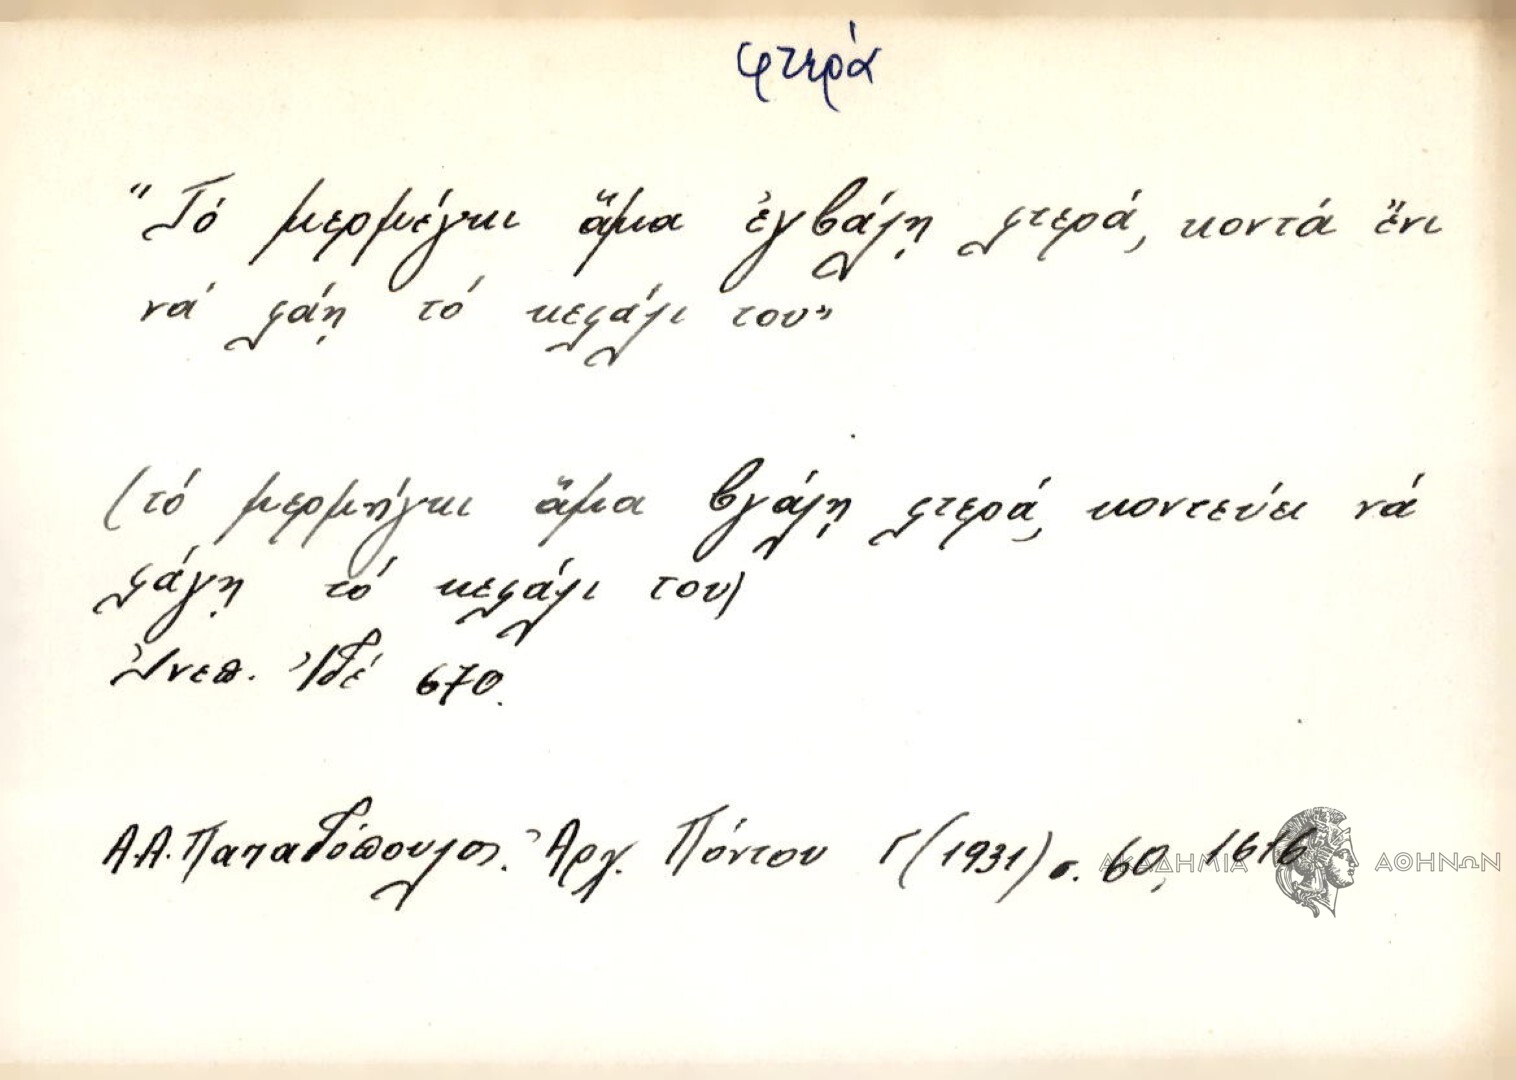 φτερά
"Τό μερμέγκι ἅμα ἐγβάλῃ φτερά, κοντά ἔνι
νά φάῃ τό κεφάλι του"
(τό μερμήγκι ἅμα βγάλῃ φτερά, κοντεύει νά
φάγῃ τό κεφάλι του)
670.
Α.Α. Παπαδόπουλος. Ἀρχ. Πόντου Γ (1931) σ. 60, 1616
ΑΚΑΔΗΜΙΑ ΑΘΗΝΩΝ